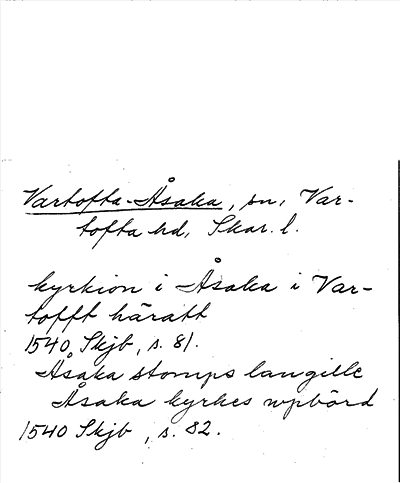 Vartofta-Åsaka, sn, Var-
tofta hd, Skar. l.
kyrkion i Åsaka i Var-
tofft häratt
1540 Skjb, s. 81.
Åsaka stomps langille
Åsaka kyrkes wpbörd
1540 Skjb, s. 82.